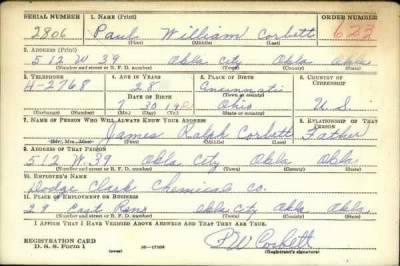 SERIAL NUMBER 1. NAME (Print) ORDER NUMBER
2806 Paul William Corbett 622
(First) (Middle) (Last)
2. ADDRESS (Print)
512 W. 39 Okla City Okla Okla
(Number and street or R. F. D. number) (Town) (County) (State)
3. TELEPHONE 4. AGE IN YEARS 5. PLACE OF BIRTH 6. COUNTRY OF CITIZENSHIP
4-2768 28 Cincinnati
(Town or county)
DATE OF BIRTH
7 30 Ohio U.S.
(Exchange) (Number) (Mo.) (Day) (Yr.) (State or country)
7. NAME OF PERSON WHO WILL ALWAYS KNOW YOUR ADDRESS 8. RELATIONSHIP OF THAT PERSON
James Ralph Corbett Father
(Mr., Mrs., Miss) (First) (Middle) (Last)
9. ADDRESS OF THAT PERSON
512 W. 39 Okla City Okla Okla.
(Number and street or R. F. D. number) (Town) (County) (State)
10. EMPLOYER'S NAME
Dodge Clark Chemical Co.
11. PLACE OF EMPLOYMENT OR BUSINESS
29 East Reno Okla City Okla Okla.
(Number and street or R. F. D. number) (Town) (County) (State)
I AFFIRM THAT I HAVE VERIFIED ABOVE ANSWERS AND THAT THEY ARE TRUE.
REGISTRATION CARD
D. S. S. Form 1 (over) 16—17105
P W Corbett
(Registrant's signature)